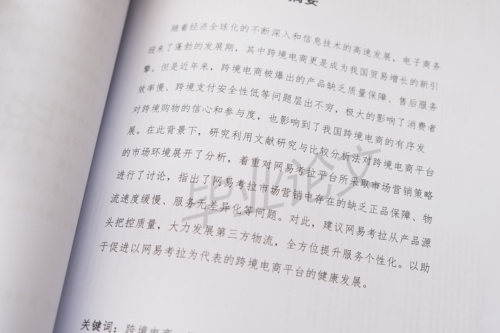 摘要
随着经济全球化的不断深入和信息技术的高速发展，电子商务
迎来了蓬勃的发展期，其中跨境电商更是成为我国贸易增长的新引
擎。但是近年来，跨境电商被爆出的产品缺乏质量保障、售后服务
效率慢、跨境支付安全性低等问题层出不穷，极大的影响了消费者
对跨境购物的信心和参与度，也影响到了我国跨境电商的有序发
展。在此背景下，研究利用文献研究与比较分析法对跨境电商平台
的市场环境展开了分析，着重对网易考拉平台所采取市场营销策略
进行了讨论，指出了网易考拉市场营销中存在的缺乏正品保障、物
流速度缓慢、服务无差异化等问题。对此，建议网易考拉从产品源
头把控质量，大力发展第三方物流，全方位提升服务个性化。以助
于促进以网易考拉为代表的跨境电商平台的健康发展。
毕业论文
关键词：跨境电商